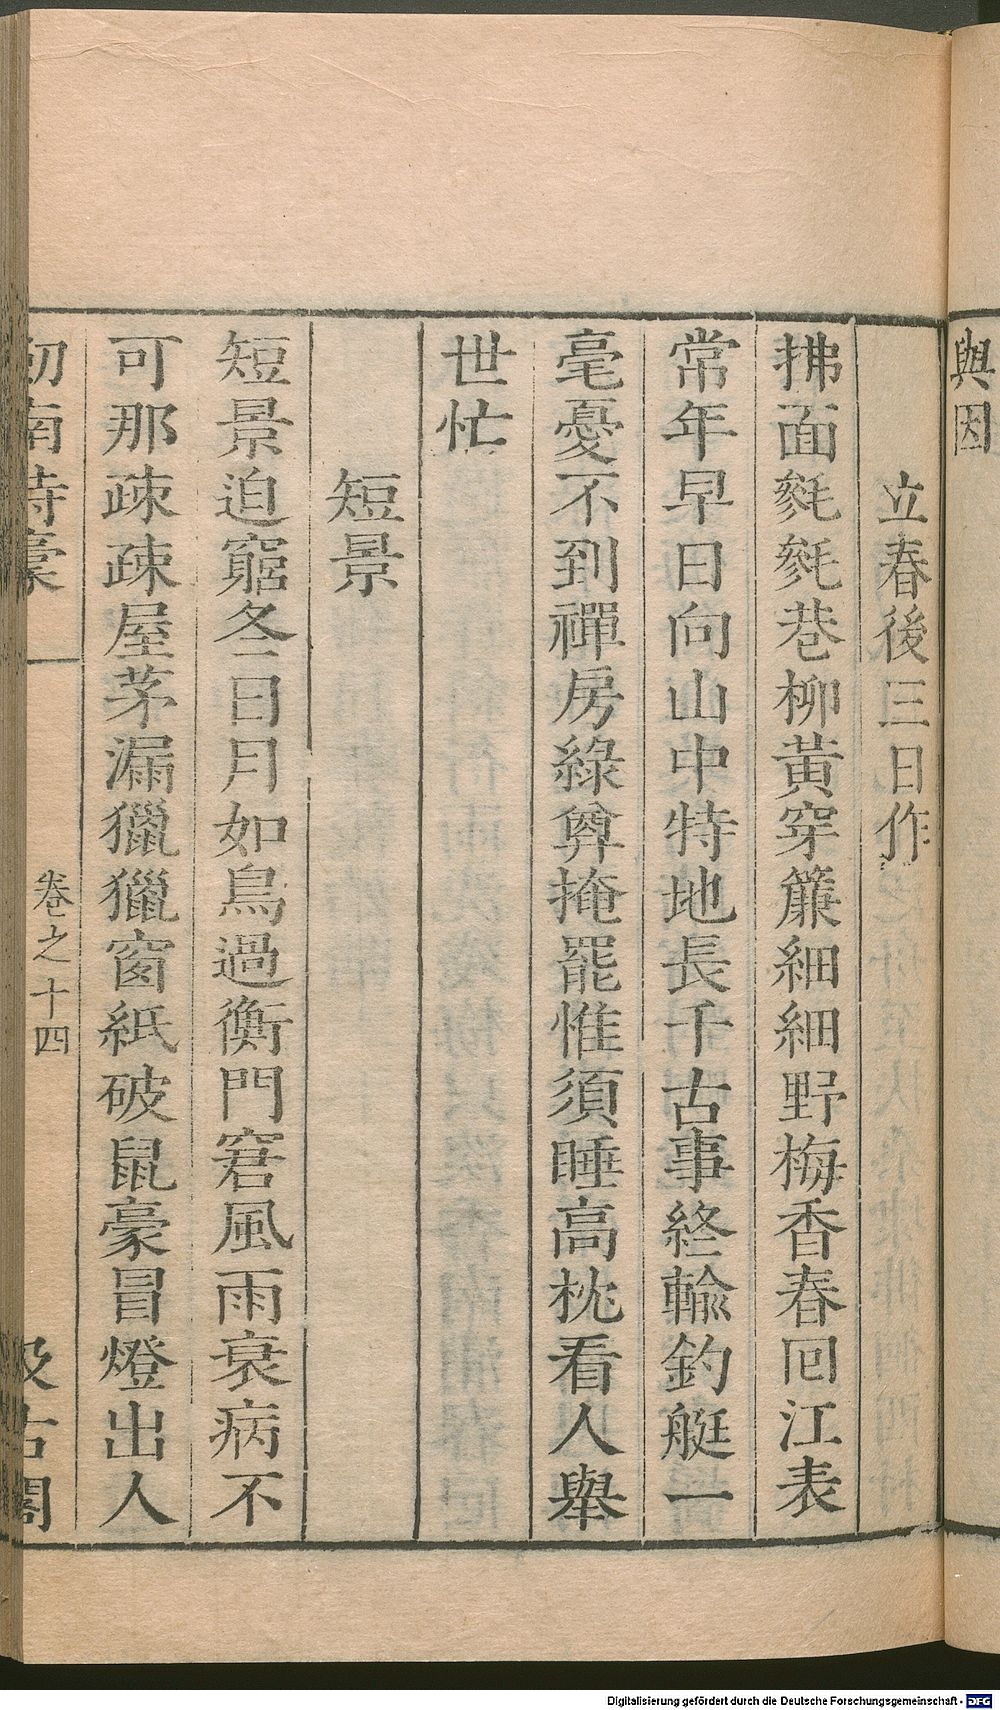 與因
立春後三日作
拂面毿毿巷柳黃穿簾細細野梅香春回江表
常年早日向山中特地長千古事終輸釣艇一
毫憂不到禪房綠尊掩罷惟須睡高枕看人舉
世忙
短景
短景迫窮冬日月如鳥過衡門窘風雨衰病不
可那疎疎屋茅漏獵獵窗紙破鼠豪冒燈出人
劒南詩稾
卷之十四
汲古閣
Digitalisierung gefördert durch die Deutsche Forschungsgemeinschaft - DFG